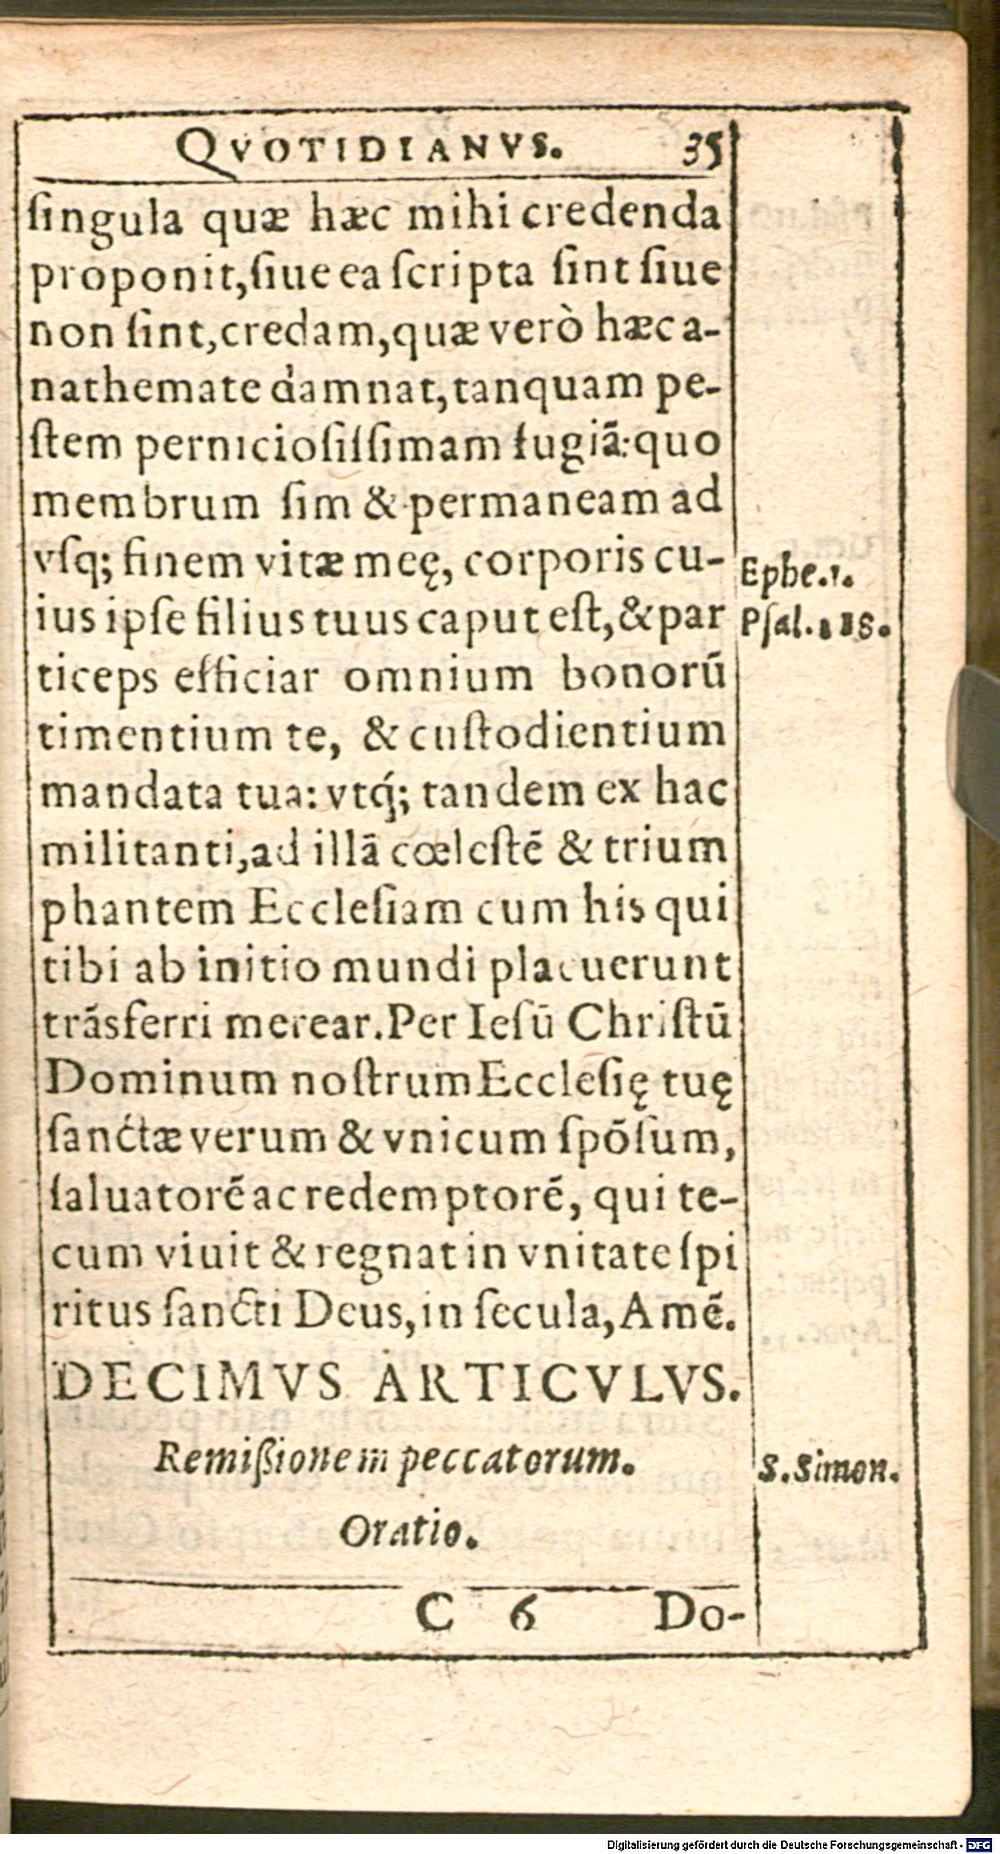 QVOTIDIANVS. 35
ſingula quæ hæc mihi credenda
proponit, ſiue ea ſcripta ſint ſiue
non ſint, credam, quæ verò hæc a-
nathemate damnat, tanquam pe-
ſtem pernicioſiſſimam fugiã: quo
membrum ſim & permaneam ad
vſq; finem vitæ meę, corporis cu-
ius ipſe filius tuus caput eſt, & par
ticeps efficiar omnium bonorũ
timentium te, & cuſtodientium
mandata tua: vtq́; tandem ex hac
militanti, ad illã cœleſtẽ & trium
phantem Eccleſiam cum his qui
tibi ab initio mundi placuerunt
trãsferri merear. Per Ieſũ Chriſtũ
Dominum noſtrum Eccleſię tuę
ſanctæ verum & vnicum ſpõſum,
ſaluatorẽ ac redemptorẽ, qui te-
cum viuit & regnat in vnitate ſpi
ritus ſancti Deus, in ſecula, Amẽ.
DECIMVS ARTICVLVS.
Remißionem peccatorum.
Oratio.
C 6 Do-
Ephe. 1.
Pſal. 118.
S. Simon.
Digitalisierung gefördert durch die Deutsche Forschungsgemeinschaft - DFG